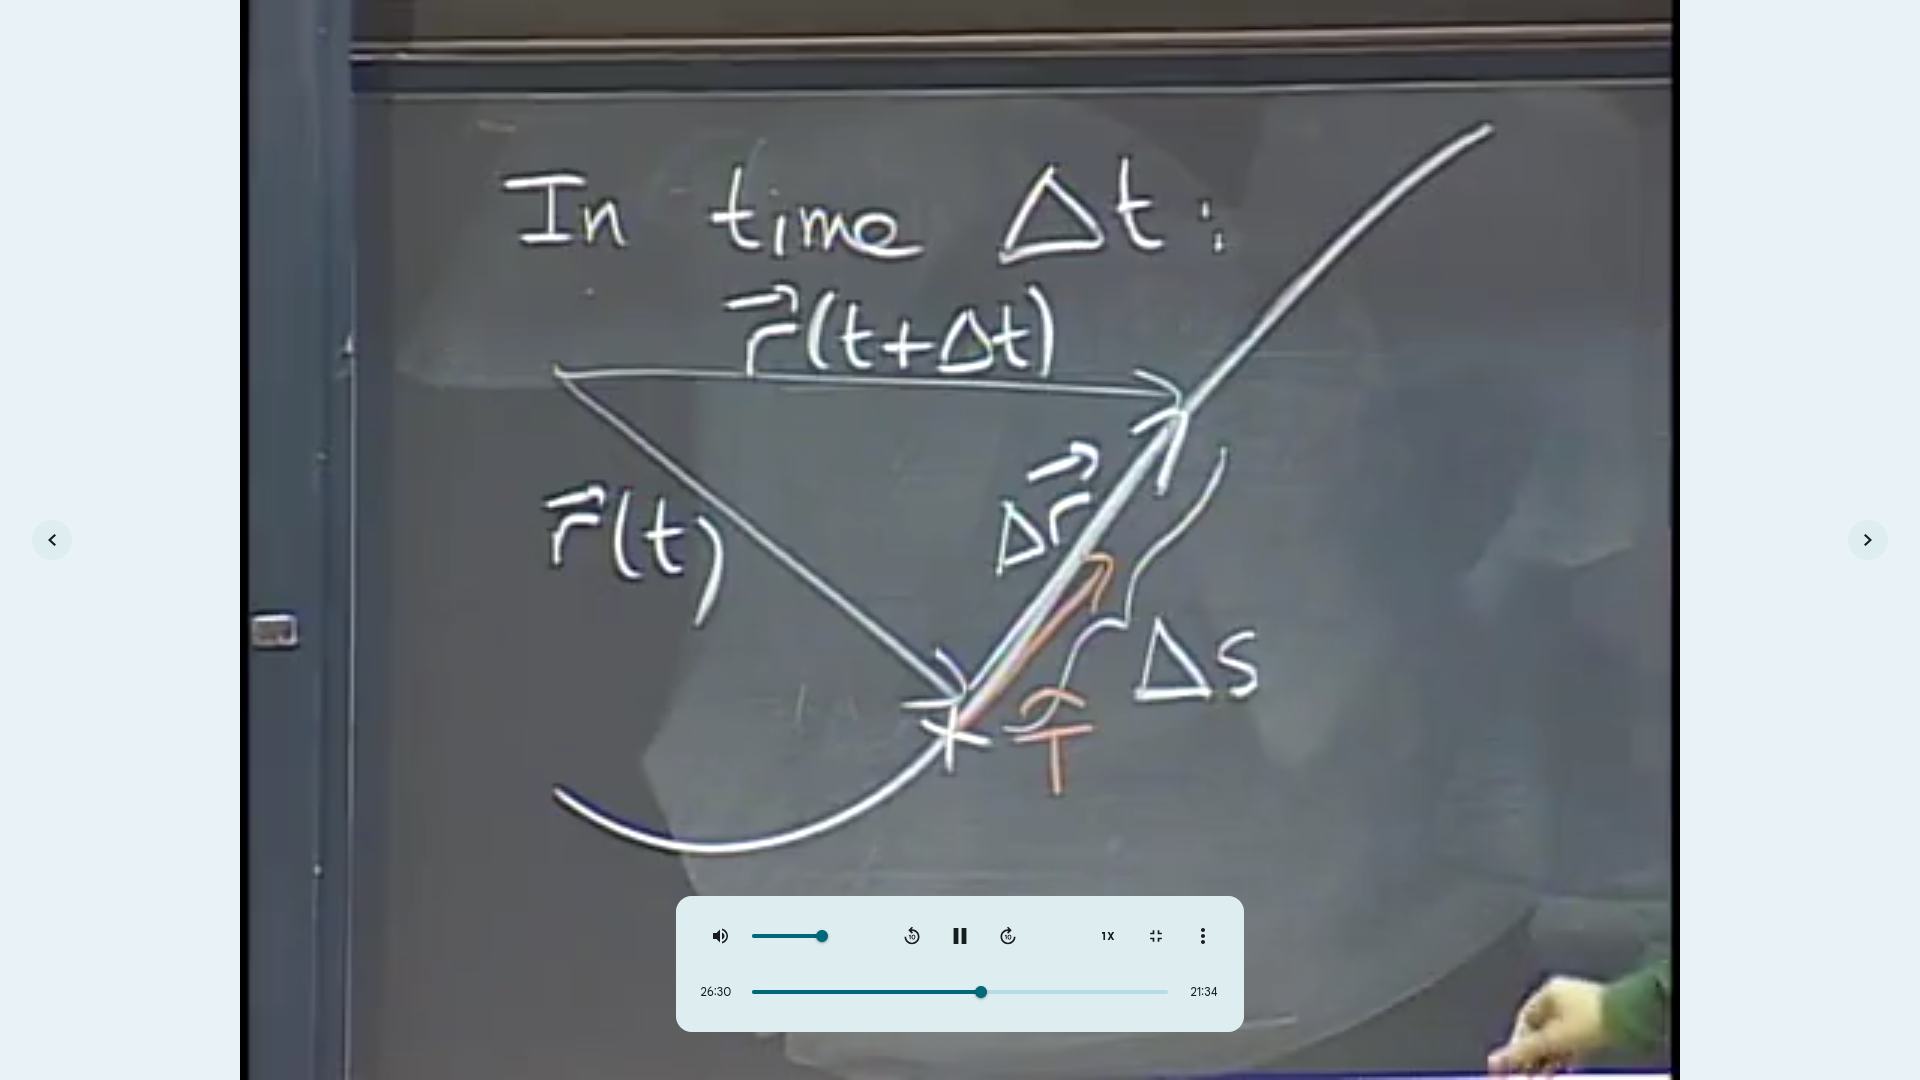 In time Δt:
r⃗(t+Δt)
r⃗(t)
Δr⃗
Δs
T̂
1X
26:30
21:34